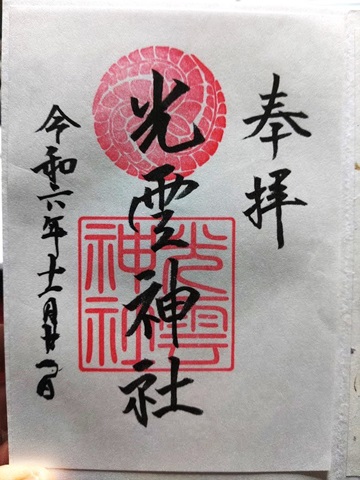 奉拝
光雲神社
光雲
神社
令和六年十一月廿一日